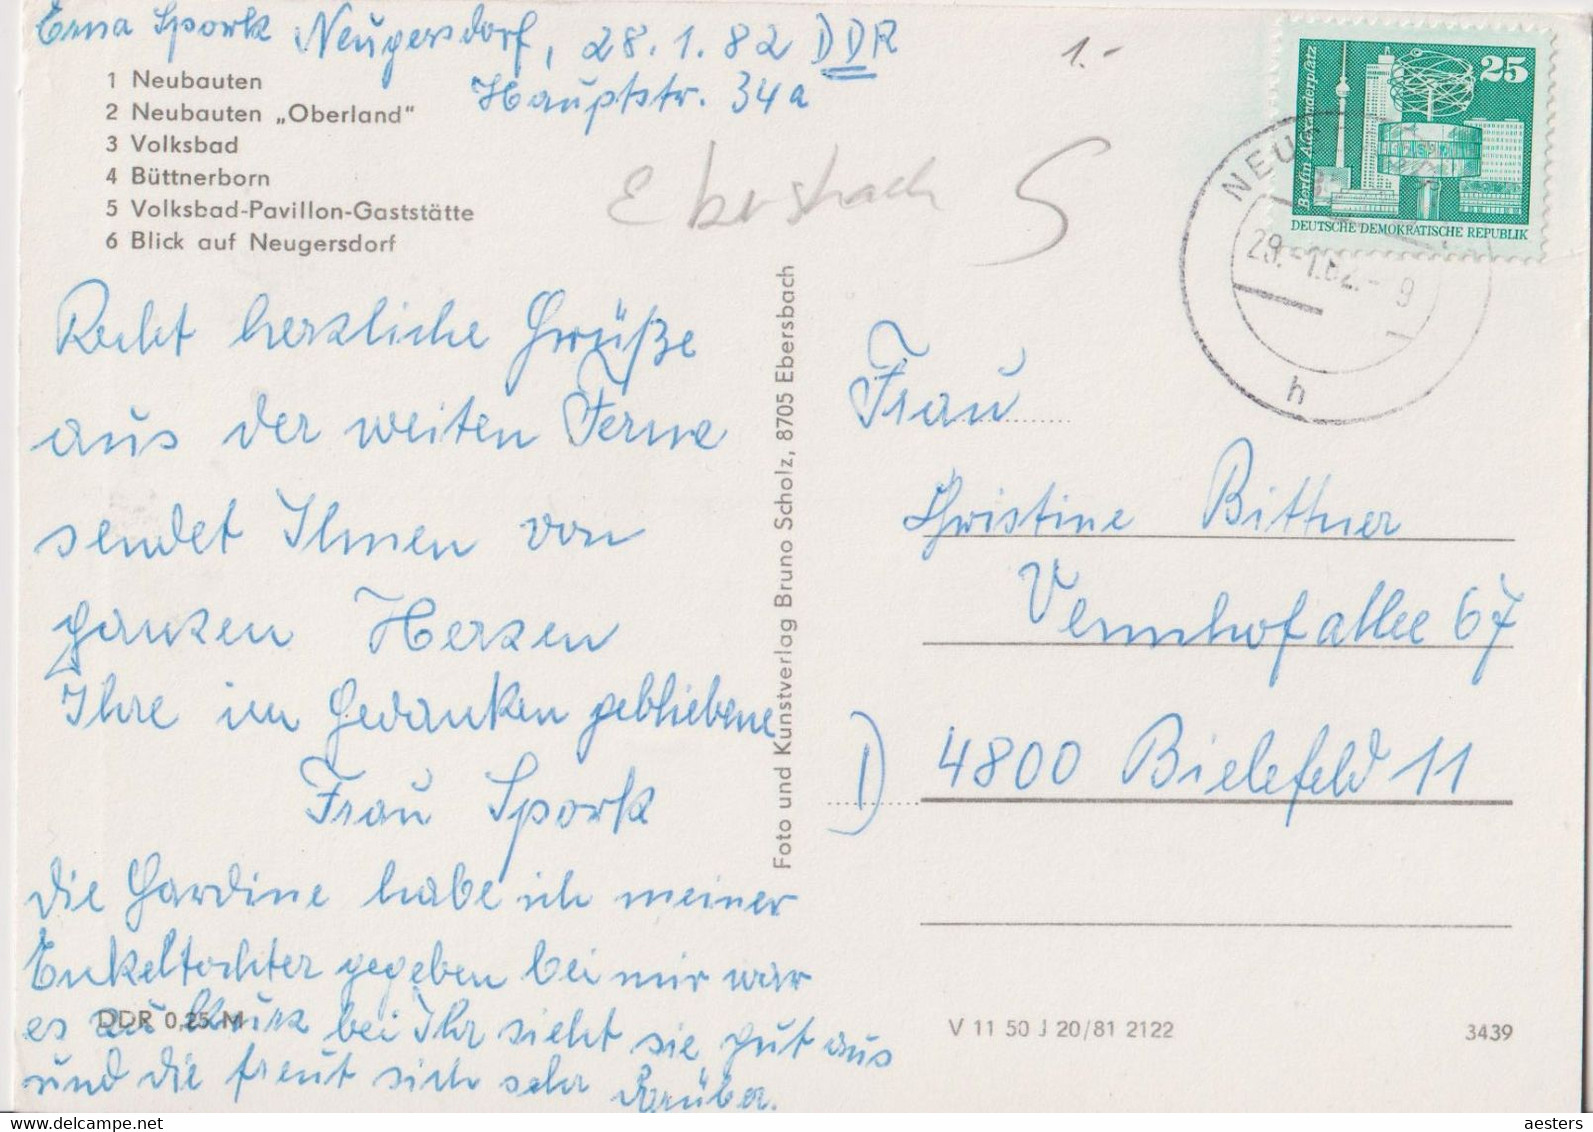 Erna Spork Neugersdorf, 28.1.82 DDR
Hauptstr. 34a
1.-
1 Neubauten
2 Neubauten „Oberland“
3 Volksbad
4 Büttnerborn
5 Volksbad-Pavillon-Gaststätte
6 Blick auf Neugersdorf
Ebersbach S
25
Berlin Alexanderplatz
DEUTSCHE DEMOKRATISCHE REPUBLIK
29.-1.82.- 9
h
Recht herzliche Grüße
aus der weiten Ferne
sendet Ihnen von
ganzen Herzen
Ihre in Gedanken gebliebene
Frau Spork
die Gardine habe ich meiner
Enkeltochter gegeben bei mir war
es zu kurz bei Ihr sieht sie gut aus
und die freut sich sehr darüber.
DDR 0,25 M
Foto und Kunstverlag Bruno Scholz, 8705 Ebersbach
Frau
Christine Bittner
Vennhofallee 67
D) 4800 Bielefeld 11
V 11 50 J 20/81 2122
3439
www.delcampe.net
aesters